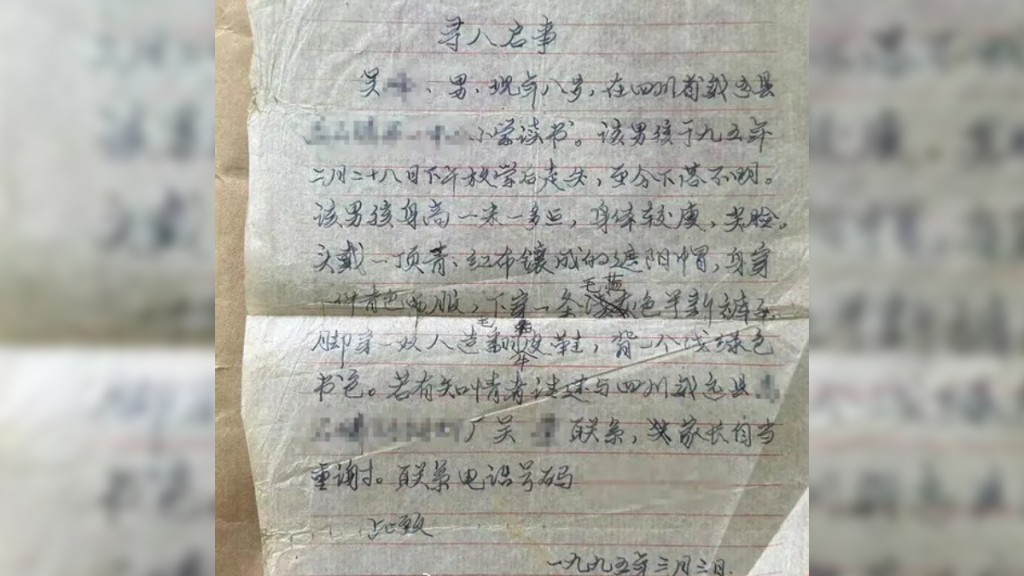 寻人启事
吴 、男、现年八岁,在四川省越西县
小学读书。该男孩于九五年
二月二十八日下午放学后走失,至今下落不明。
该男孩身高一米一多点,身体较瘦,尖脸。
头戴一顶青、红布镶成的遮阳帽,身穿
一件青色衣服,下穿一条毛蓝色半新裤子,
脚穿一双人造毛皮鞋,背一个浅绿色
书包。若有知情者请速与四川越西县
厂吴 联系,家长自当
重谢。联系电话号码
此致
一九九五年三月三日.